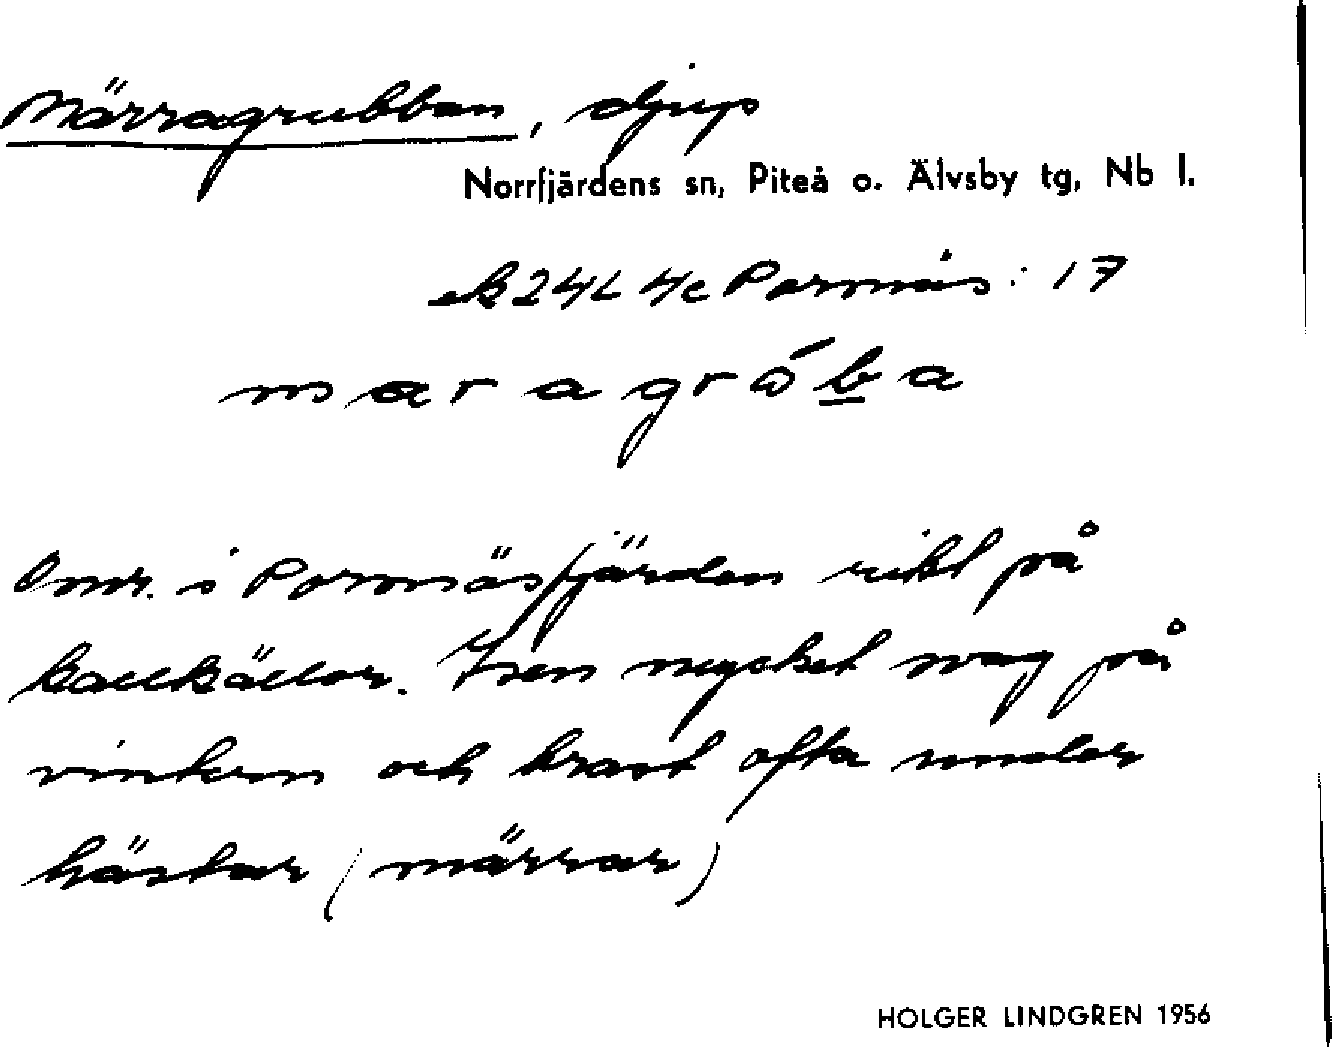 Märragrubban, djup
Norrfjärdens sn, Piteå o. Älvsby tg, Nb l.
ek 24L 4c Porsnäs: 17
maragråba
Omr. i Porsnäsfjärden rikt på
kallkällor. Isen mycket svag på
vintern och brast ofta under
hästar (märrar)
HOLGER LINDGREN 1956